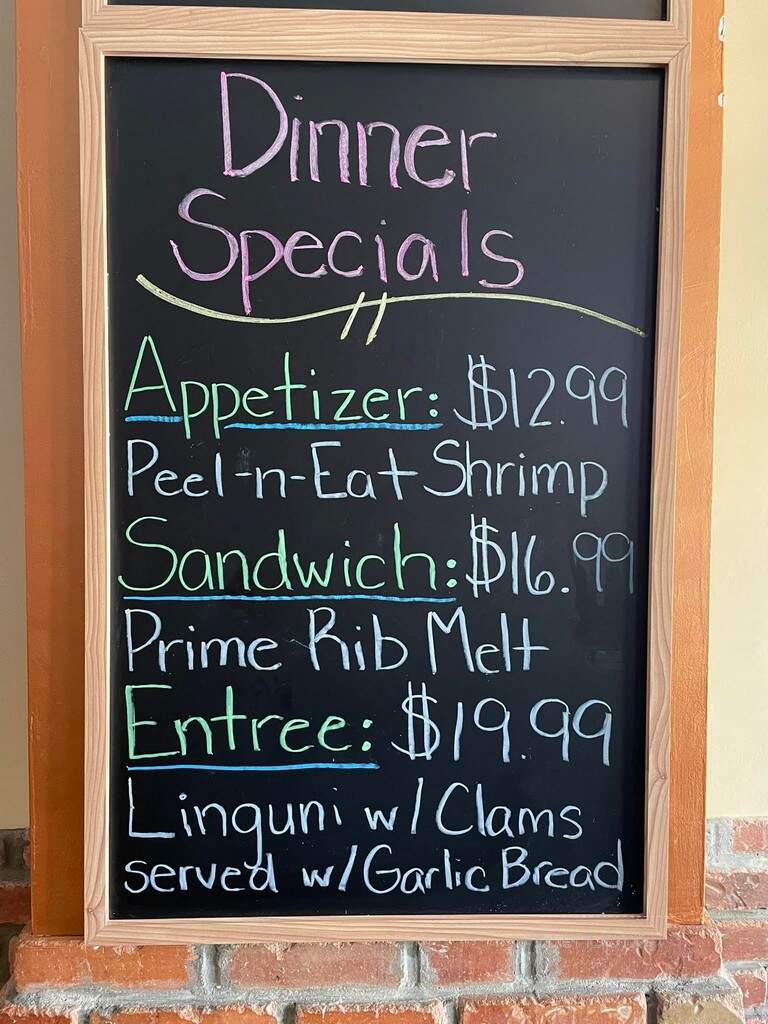 Dinner
Specials
Appetizer: $12.99
Peel-n-Eat Shrimp
Sandwich: $16.99
Prime Rib Melt
Entree: $19.99
Linguni w/ Clams
served w/ Garlic Bread